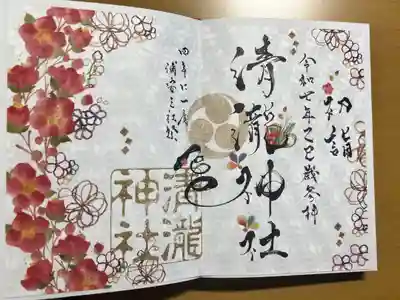 令和七年乙巳歳参拝
清瀧神社
四年に一度
浦安三社祭
清瀧
神社